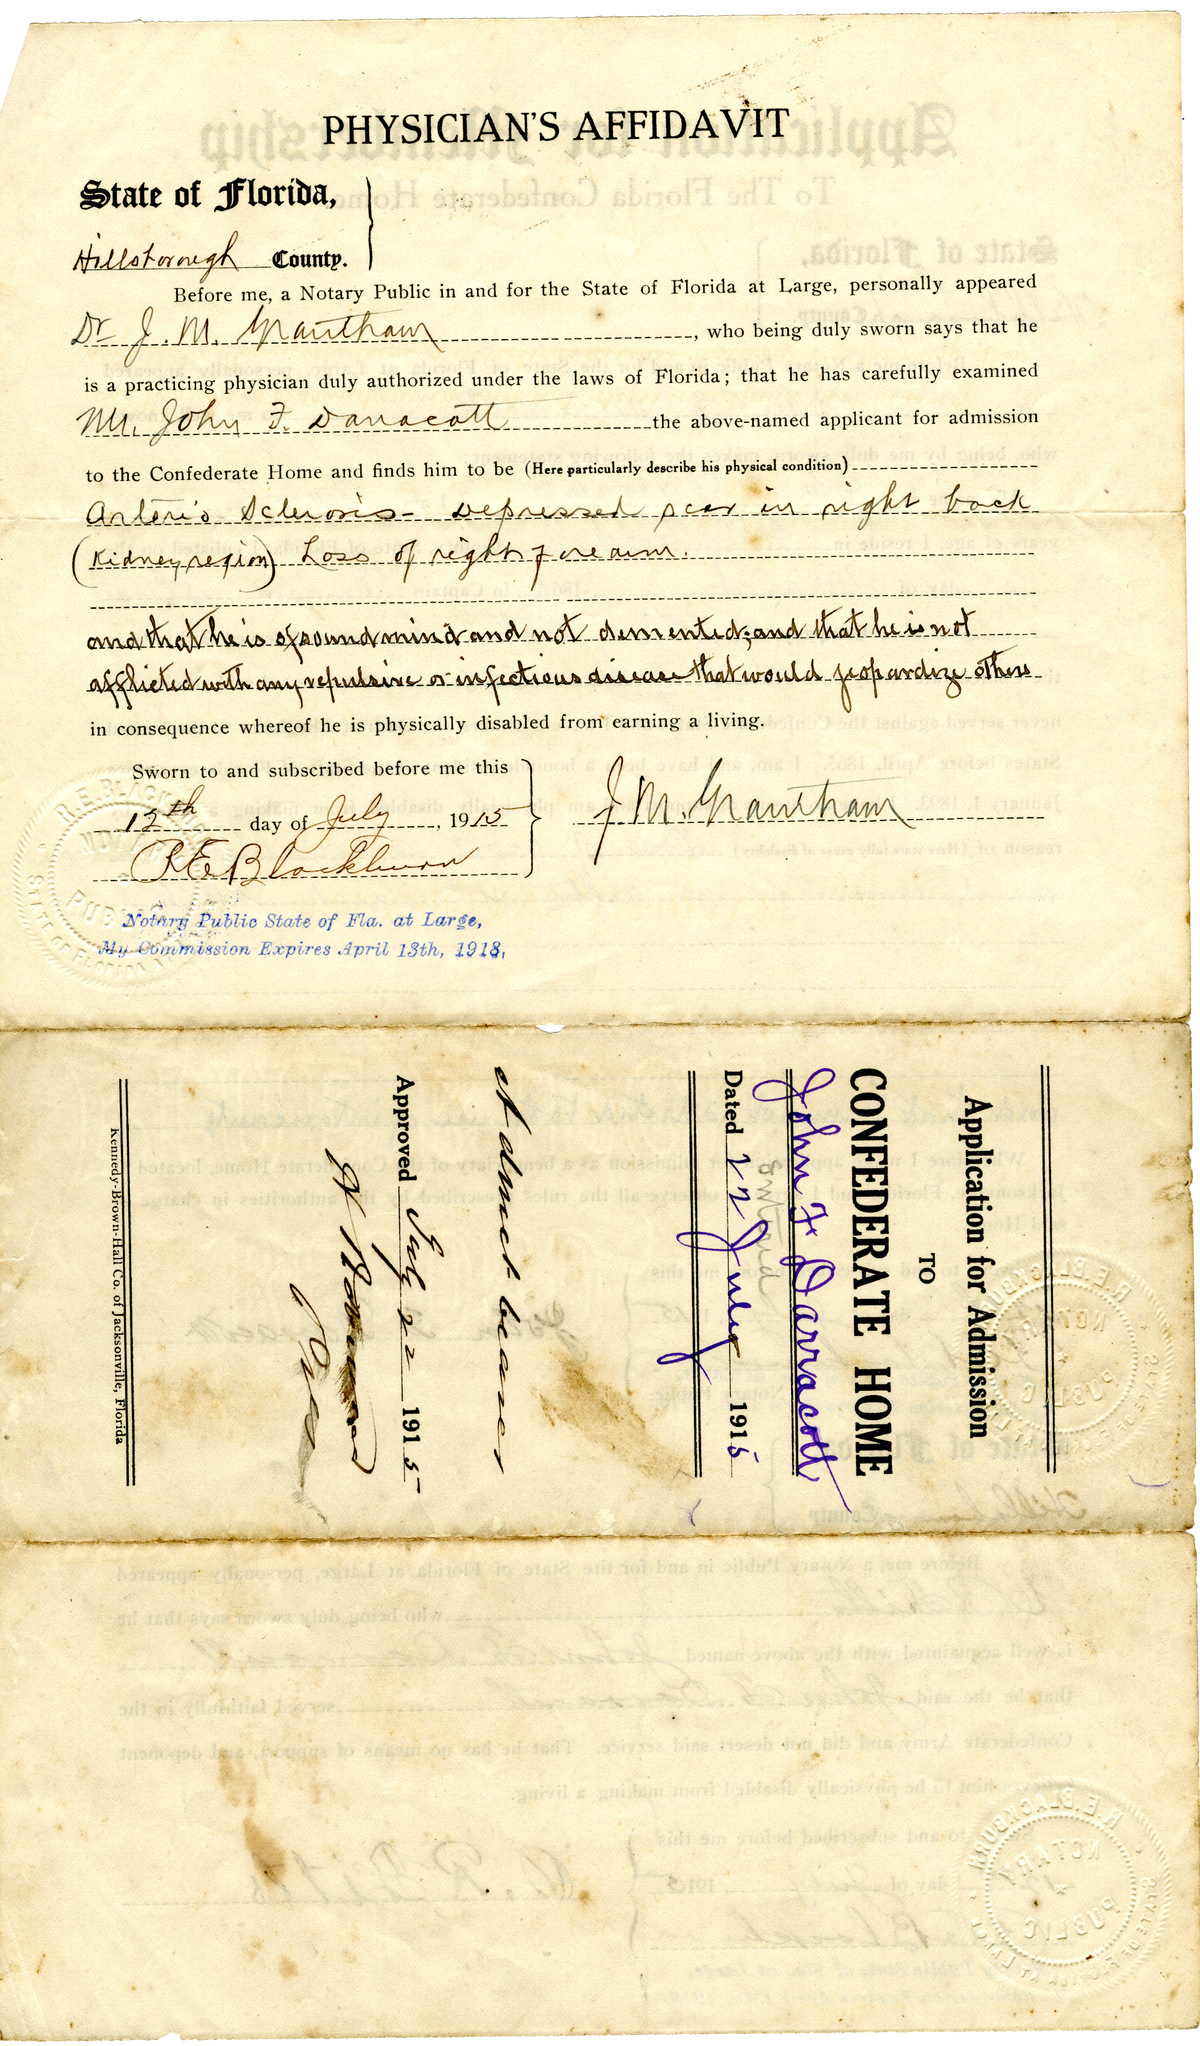 PHYSICIAN'S AFFIDAVIT
State of Florida,
Hillsborough County.
Before me, a Notary Public in and for the State of Florida at Large, personally appeared
Dr J. M. Grantham, who being duly sworn says that he
is a practicing physician duly authorized under the laws of Florida; that he has carefully examined
Mr. John F. Darracott the above-named applicant for admission
to the Confederate Home and finds him to be (Here particularly describe his physical condition)
Arterio Sclerosis - Depressed scar in right back
(Kidney region) Loss of right forearm.
and that he is of sound mind and not demented; and that he is not
afflicted with any repulsive or infectious disease that would jeopardize others
in consequence whereof he is physically disabled from earning a living.
Sworn to and subscribed before me this
12th day of July, 1915
J M. Grantham
R E Blackburn
Notary Public State of Fla. at Large,
My Commission Expires April 13th, 1918,
Application for Admission
TO
CONFEDERATE HOME
John F Darracott
Dated 22 July 1915
Admit bearer
Approved July 22 1915
Kennedy-Brown-Hall Co. of Jacksonville, Florida
R. E. BLACKBURN
NOTARY
PUBLIC
STATE OF FLORIDA AT LARGE